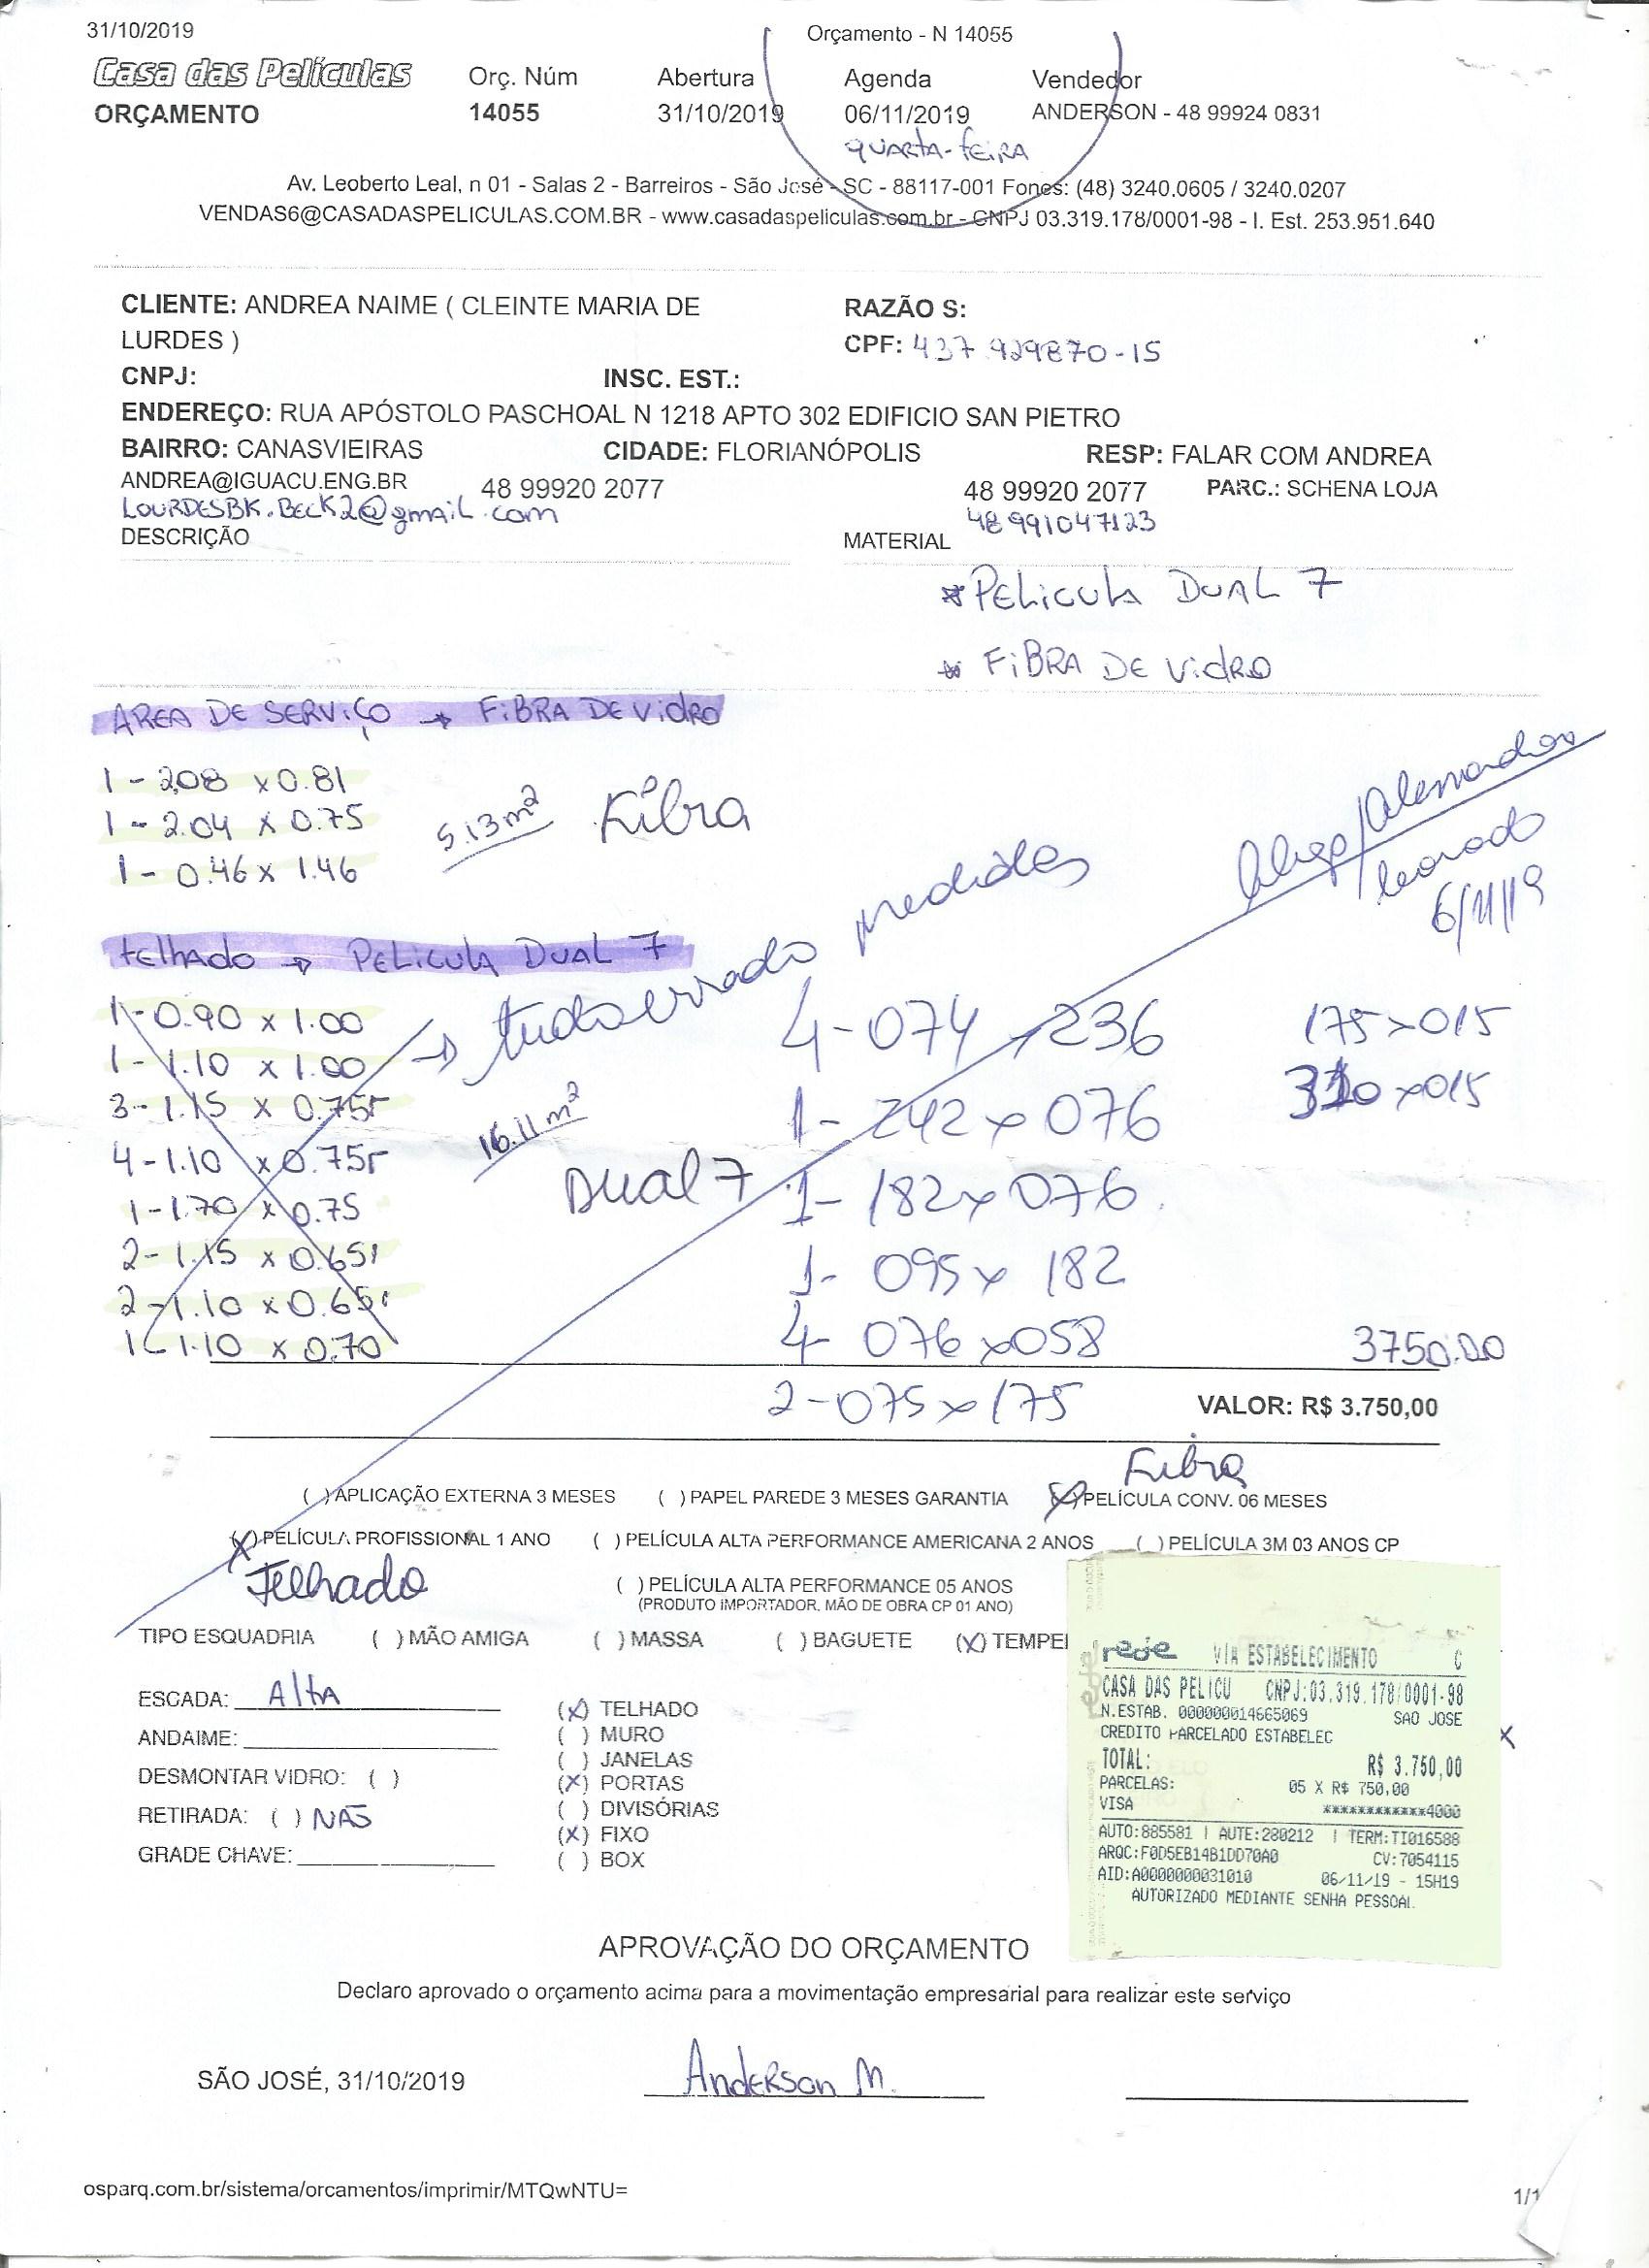 31/10/2019
Orçamento - N 14055
Casa das Películas
Orç. Núm
Abertura
Agenda
Vendedor
ORÇAMENTO
14055
31/10/2019
06/11/2019
ANDERSON - 48 99924 0831
QUARTA-FEIRA
Av. Leoberto Leal, n 01 - Salas 2 - Barreiros - São José - SC - 88117-001 Fones: (48) 3240.0605 / 3240.0207
VENDAS6@CASADASPELICULAS.COM.BR - www.casadaspeliculas.com.br - CNPJ 03.319.178/0001-98 - I. Est. 253.951.640
CLIENTE: ANDREA NAIME ( CLEINTE MARIA DE
LURDES )
RAZÃO S:
CPF: 437.929870-15
CNPJ:
INSC. EST.:
ENDEREÇO: RUA APÓSTOLO PASCHOAL N 1218 APTO 302 EDIFICIO SAN PIETRO
BAIRRO: CANASVIEIRAS
CIDADE: FLORIANÓPOLIS
RESP: FALAR COM ANDREA
ANDREA@IGUACU.ENG.BR
48 99920 2077
48 99920 2077
PARC.: SCHENA LOJA
LOURDESBK.BECK2@gmail.com
48 991047123
DESCRIÇÃO
MATERIAL
* PELICULA DUAL 7
* FIBRA DE VIDRO
AREA DE SERVIÇO → FIBRA DE VIDRO
1 - 2,08 x 0.81
1 - 2.04 x 0.75
1 - 0.46 x 1.46
5.13 m²
Fibra
6/11/19
telhado → PELICULA DUAL 7
1 - 0.90 x 1.00
1 - 1.10 x 1.00
3 - 1.15 x 0.75
4 - 1.10 x 0.75
1 - 1.70 x 0.75
2 - 1.15 x 0.65
2 - 1.10 x 0.65
1 - 1.10 x 0.70
→ tudo errado medidas
16.11 m²
Dual 7
4 - 074 x 236
1 - 242 x 076
1 - 182 x 076
1 - 095 x 182
4 - 076 x 058
2 - 075 x 175
175 x 015
310 x 015
3750.00
VALOR: R$ 3.750,00
Fibra
( ) APLICAÇÃO EXTERNA 3 MESES ( ) PAPEL PAREDE 3 MESES GARANTIA (X) PELÍCULA CONV. 06 MESES
(X) PELÍCULA PROFISSIONAL 1 ANO ( ) PELÍCULA ALTA PERFORMANCE AMERICANA 2 ANOS ( ) PELÍCULA 3M 03 ANOS CP
Telhado
( ) PELÍCULA ALTA PERFORMANCE 05 ANOS
(PRODUTO IMPORTADOR. MÃO DE OBRA CP 01 ANO)
TIPO ESQUADRIA ( ) MÃO AMIGA ( ) MASSA ( ) BAGUETE (X) TEMPE
ESCADA: AltA
ANDAIME:
DESMONTAR VIDRO: ( )
RETIRADA: ( ) NÃO
GRADE CHAVE:
(X) TELHADO
( ) MURO
( ) JANELAS
(X) PORTAS
( ) DIVISÓRIAS
(X) FIXO
( ) BOX
rede VIA ESTABELECIMENTO C
CASA DAS PELICU CNPJ:03.319.178/0001-98
N.ESTAB. 000000014665069 SAO JOSE
CREDITO PARCELADO ESTABELEC
TOTAL: R$ 3.750,00
PARCELAS: 05 X R$ 750,00
VISA ************4000
AUTO:885581 | AUTE:280212 | TERM:TI016588
ARQC:F0D5EB14B1DD70A0 CV:7054115
AID:A0000000031010 06/11/19 - 15H19
AUTORIZADO MEDIANTE SENHA PESSOAL
X
APROVAÇÃO DO ORÇAMENTO
Declaro aprovado o orçamento acima para a movimentação empresarial para realizar este serviço
SÃO JOSÉ, 31/10/2019
Anderson M.
osparq.com.br/sistema/orcamentos/imprimir/MTQwNTU=
1/1